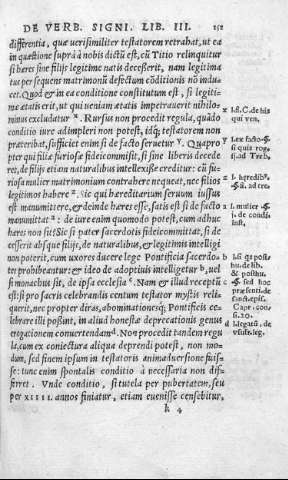 DE VERB. SIGNI. LIB. III. 151
differentia, quæ uerisimiliter testatorem retrahat, ut ea
in quæstione suprà à nobis dictū est, cū Titio relinquitur
si heres sine filijs legitime natis decesserit, nam legitima
tur per sequens matrimoniū defectum cōditionis nō indu
cet. Quod & in ea conditione constitutum est, si legiti-
mæ ætatis erit, ut qui ueniam ætatis impetrauerit nihilo-
minus excludatur x. Rursus non procedit regula, quado
conditio iure adimpleri non potest, idq; testatorem non
præteribat, sufficiet enim si de facto seruetur y. Quapro
pter qui filiæ furiosæ fideicommisit, si sine liberis decede
res, de filijs etiam naturalibus intellexisse creditur: cū fu-
riosa mulier matrimonium contrahere nequeat, nec filios
legitimos habere z. sic qui hereditarium seruum iussus
est manumittere, & deinde hæres esse, satis est si de facto
manumittat a: de iure enim quomodo potest, cum adhuc
hæres non sit? Sic si pater sacerdotis fideicommittat, si de
cesserit absque filijs, de naturalibus, & legitimis intelligi
non poterit, cum uxores ducere lege Pontificia sacerdo-
tes prohibeantur: & ideo de adoptiuis intelligetur b, uel
si monachus sit, de ipsa ecclesia c. Nam & illud receptū
est: si pro sacris celebrandis centum testator mystis reli-
querit, nec propter diras, abominationesq; Pontificis ce-
lebrare illi possint, in aliud honestæ deprecationis genus
erogationem conuertendam d. Non procedit tandem regu
la, cum ex coniectura aliqua deprendi potest, non mo-
dum, sed finem ipsum in testatoris animaduersione fuis-
se: tunc enim spontalis conditio à necessaria non dif-
ferret. Vnde conditio, si tutela per pubertatem, seu
per XIIII. annos finiatur, etiam euenisse censebitur,
k 4
x
qui ven.
y
si quis
ad Treb.
z
a l. mulier
b
hu. de lib.
& posthu.
c
d
usufr. leg.